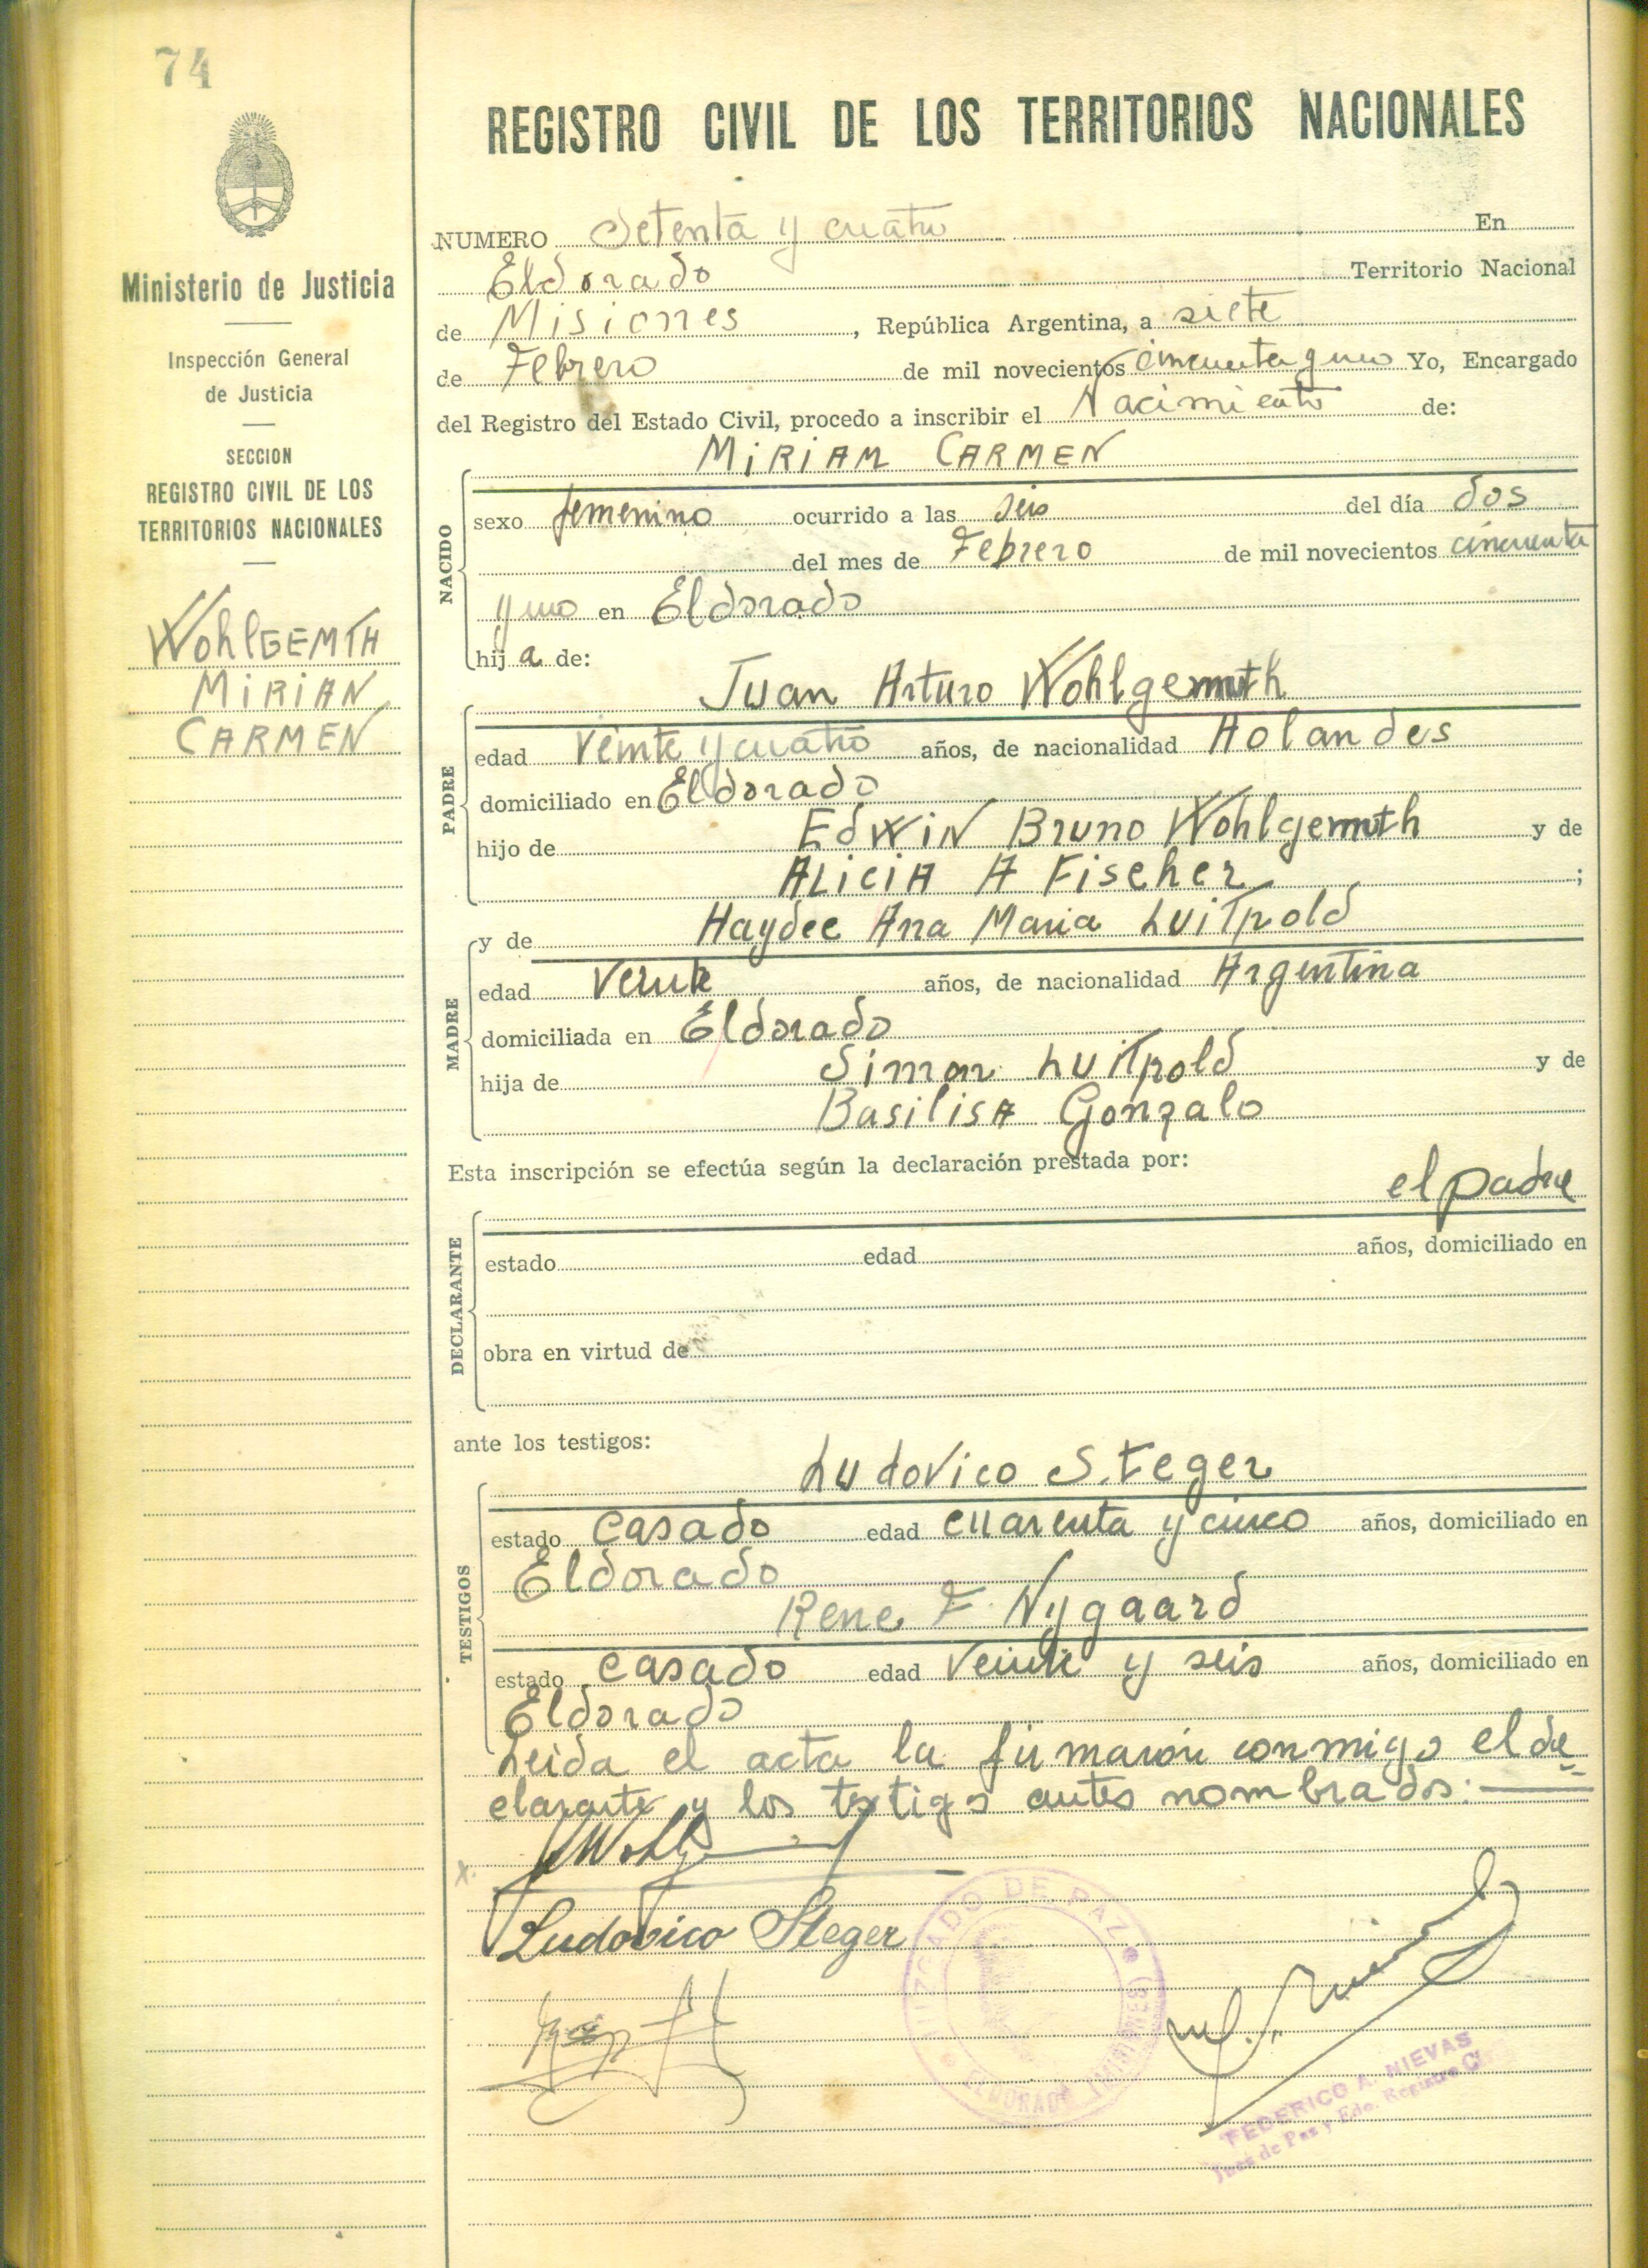 74
REGISTRO CIVIL DE LOS TERRITORIOS NACIONALES
Ministerio de Justicia
Inspección General
de Justicia
SECCION
REGISTRO CIVIL DE LOS
TERRITORIOS NACIONALES
WohlGEMTH
MiRiAN
CARMEN
NUMERO Setenta y cuatro En
Eldorado Territorio Nacional
de Misiones, República Argentina, a siete
de Febrero de mil novecientos cincuenta y uno Yo, Encargado
del Registro del Estado Civil, procedo a inscribir el Nacimiento de:
MiRiAM CARMEN
NACIDO
sexo femenino ocurrido a las seis del día dos
del mes de Febrero de mil novecientos cincuenta
y uno en Eldorado
hija de:
Juan Arturo Wohlgemuth
PADRE
edad veinte y cuatro años, de nacionalidad Holandes
domiciliado en Eldorado
hijo de Edwin Bruno Wohlgemuth y de
Alicia A Fischer;
MADRE
y de Haydee Ana Maria Luitpold
edad Veinte años, de nacionalidad Argentina
domiciliada en Eldorado
hija de Simon Luitpold y de
Basilisa Gonzalo
Esta inscripción se efectúa según la declaración prestada por:
el padre
DECLARANTE
estado edad años, domiciliado en
obra en virtud de
ante los testigos:
Ludovico Steger
TESTIGOS
estado casado edad cuarenta y cinco años, domiciliado en
Eldorado
Rene F. Nygaard
estado casado edad veinte y seis años, domiciliado en
Eldorado
Leida el acta la firmaron conmigo el de
clarante y los testigos antes nombrados:
Ludovico Steger
JUZGADO DE PAZ
ELDORADO (MISIONES)
FEDERICO A. NIEVAS
Juez de Paz y Edo. Registro C